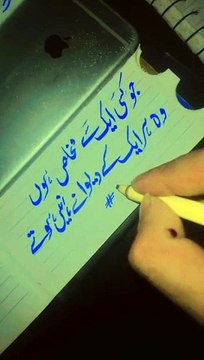 جو کسی ایک سے مخلص ہوں
وہ ہر ایک کے دیوانے نہیں ہوتے
#